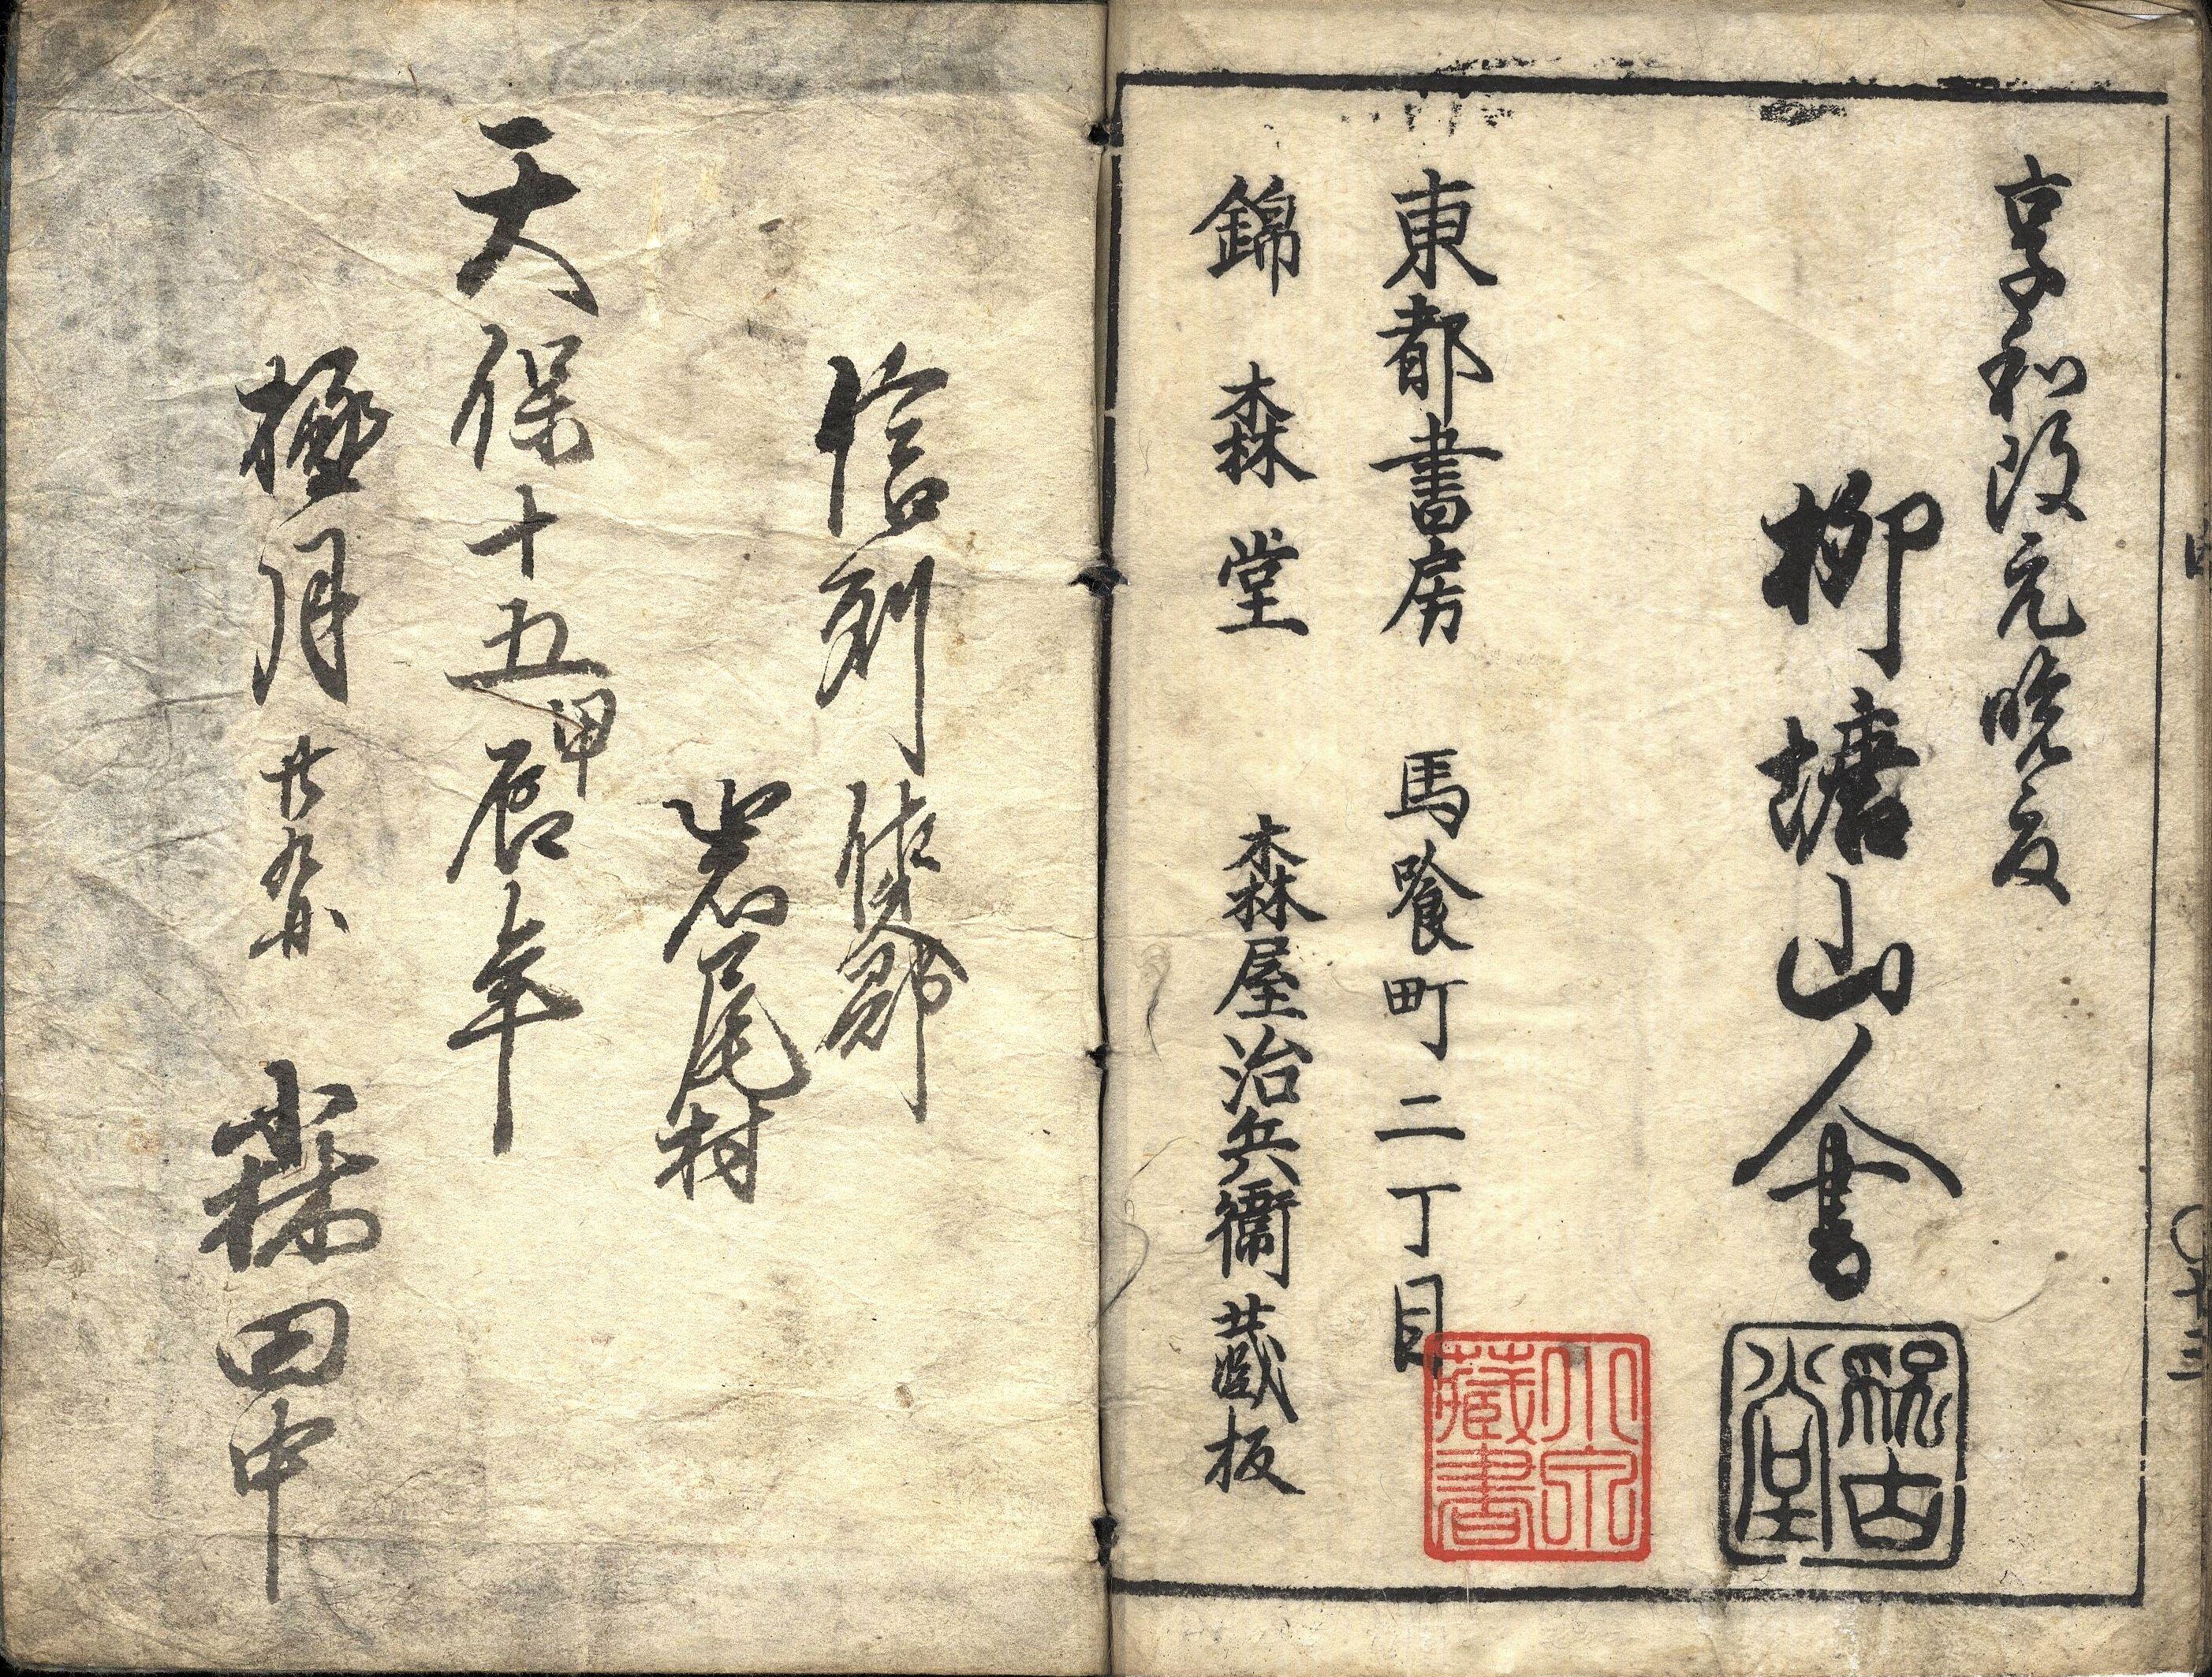 享和改元晩夏
柳塘山人書
東都書房 馬喰町二丁目
錦森堂 森屋治兵衛蔵板
藏書
信州佐久郡
岩尾村
天保十五甲辰年
極月 森田中